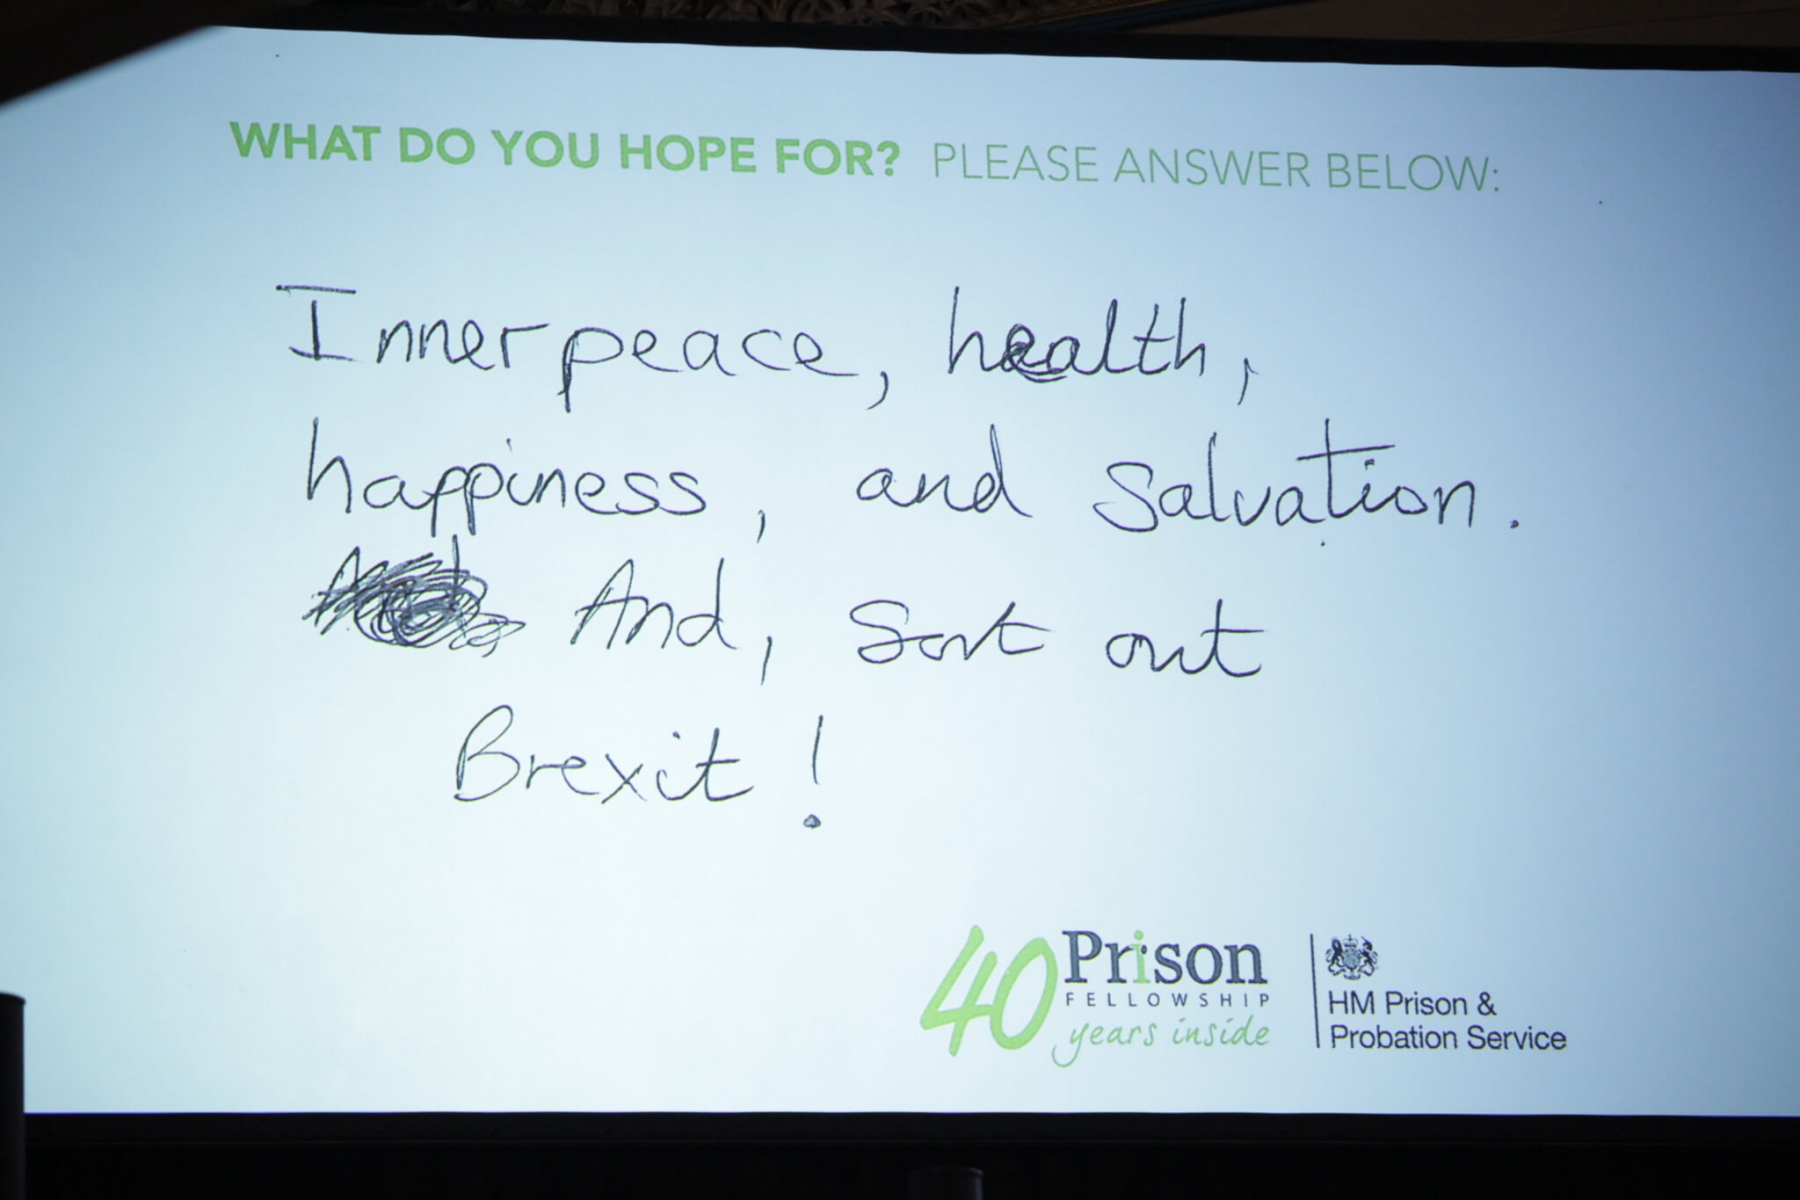 WHAT DO YOU HOPE FOR? PLEASE ANSWER BELOW:
Inner peace, health,
happiness, and salvation.
And, Sort out
Brexit!
40 Prison
FELLOWSHIP
years inside
HM Prison &
Probation Service